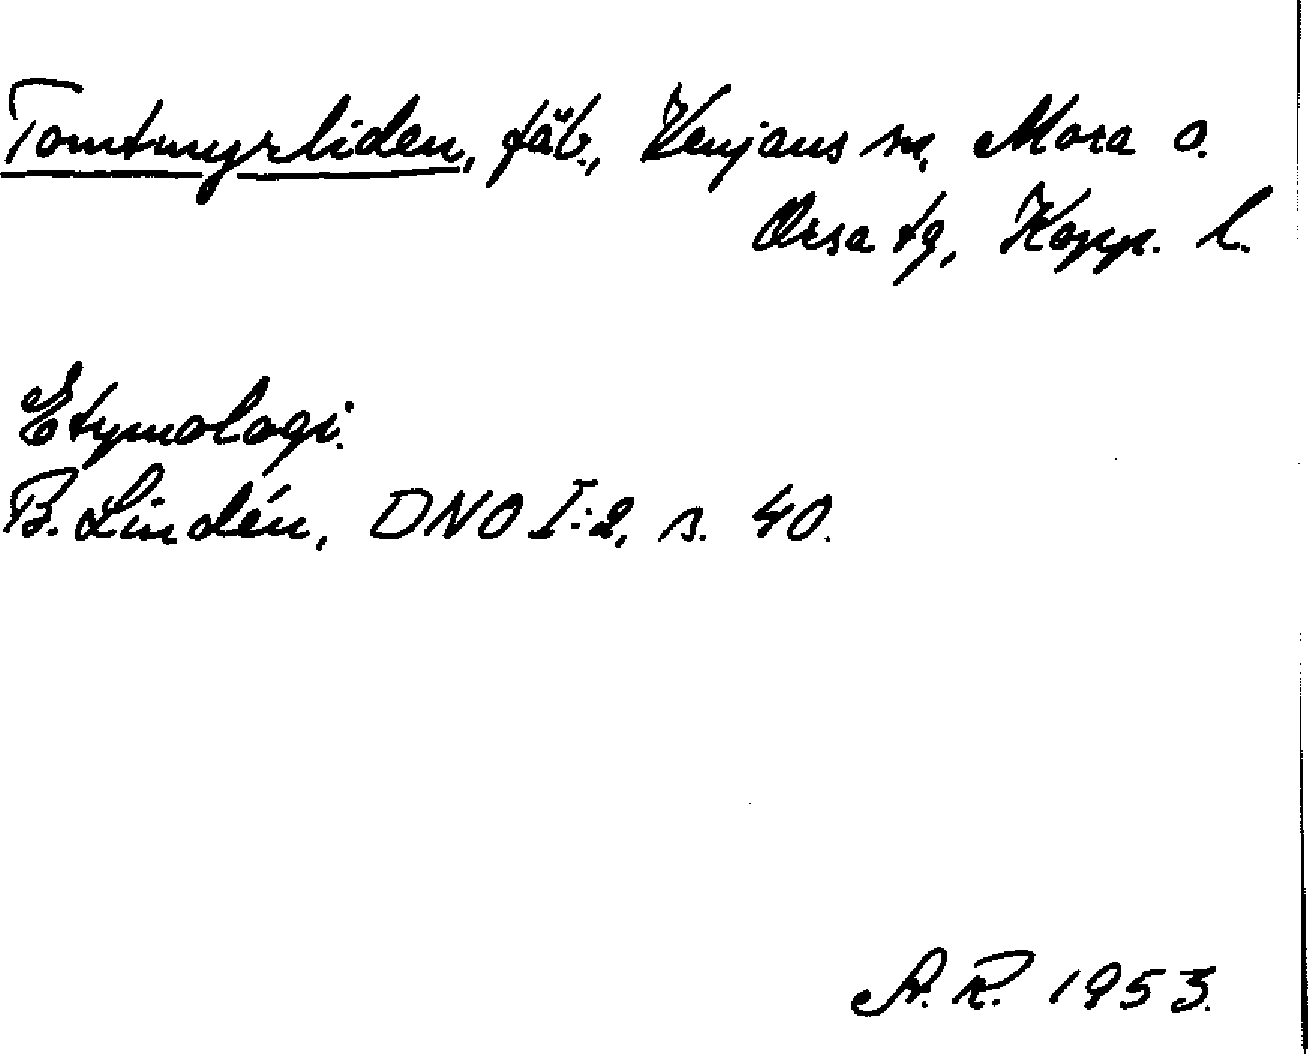 Tomtmyrliden, fäb., Venjans sn, Mora o.
Orsa tg, Kopp. l.
Etymologi.
B. Lindén, DNO I:2, s. 40.
A. R. 1953.